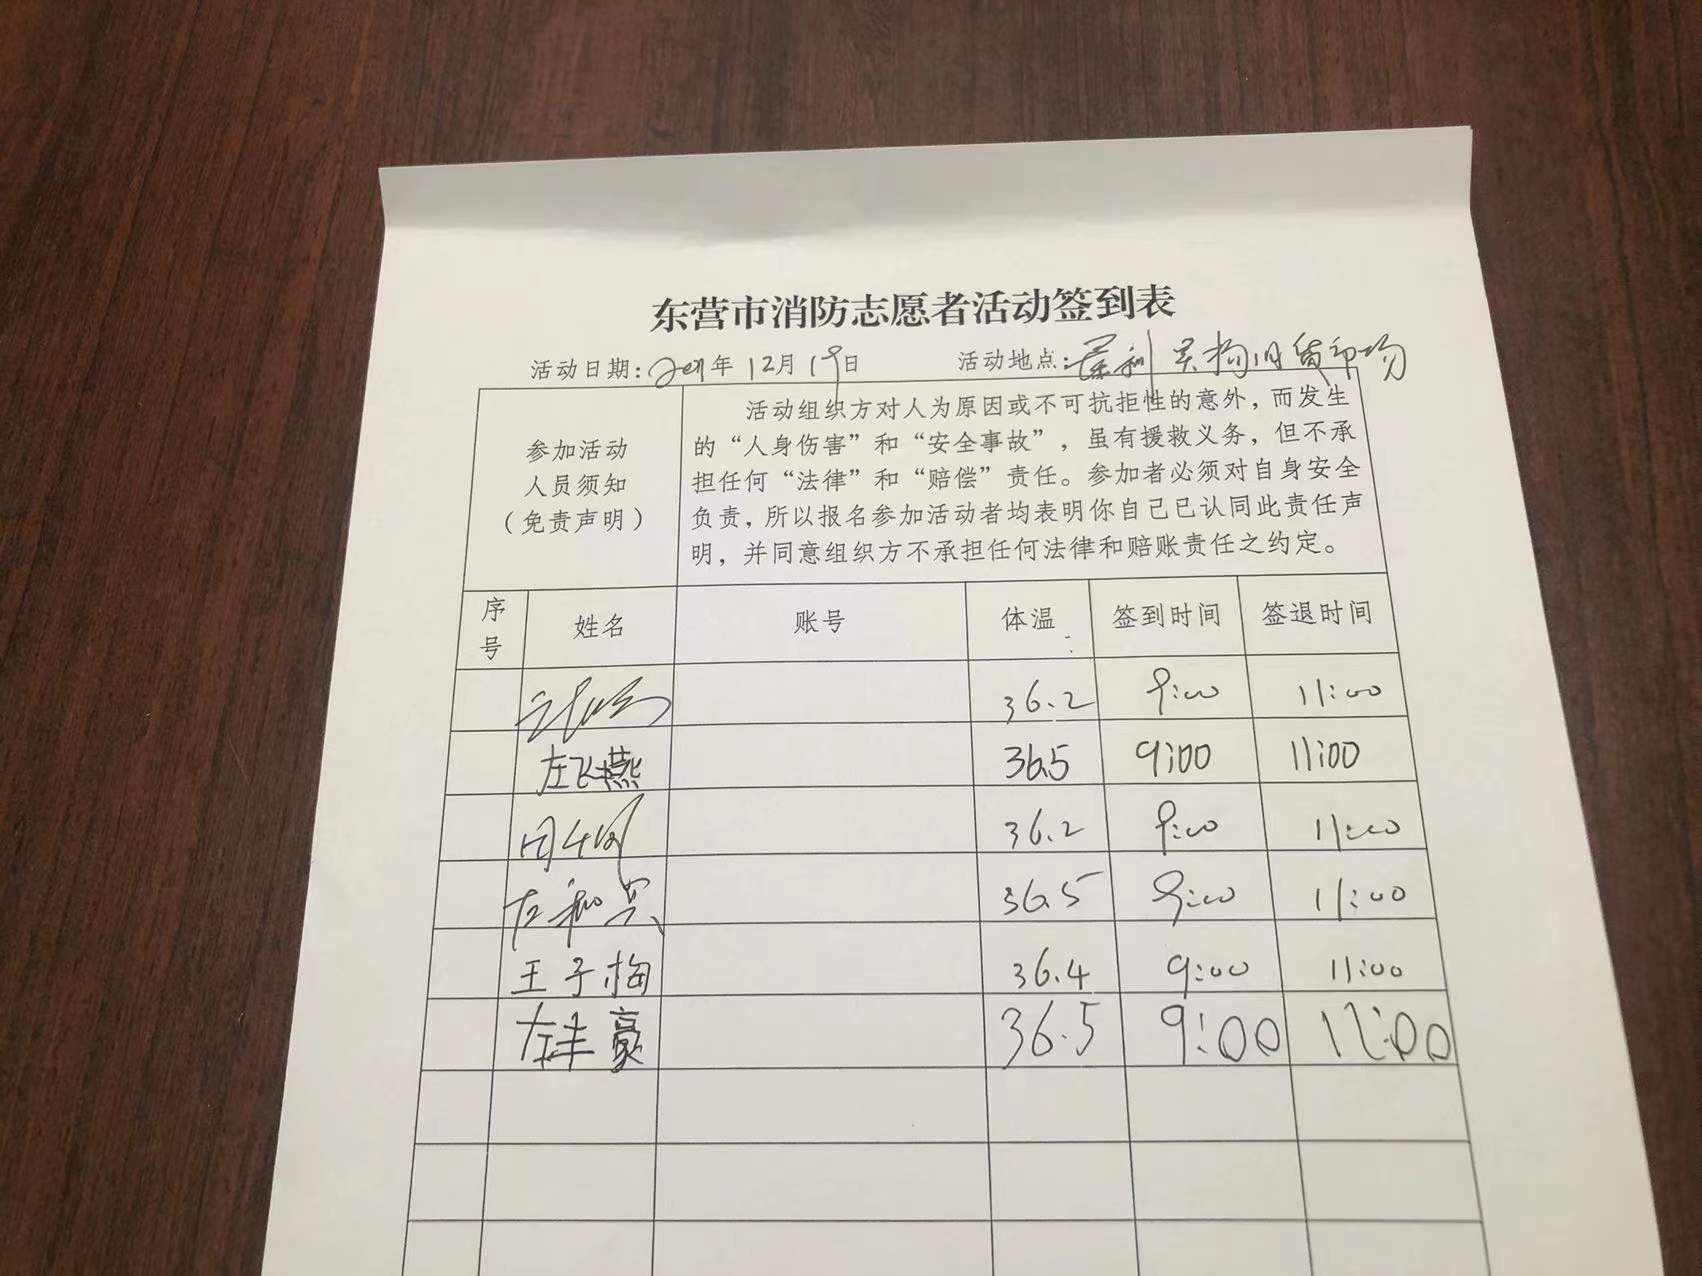 东营市消防志愿者活动签到表
活动日期：2021年12月19日 活动地点：旧货市场
参加活动
人员须知
（免责声明）
活动组织方对人为原因或不可抗拒性的意外，而发生
的“人身伤害”和“安全事故”，虽有援救义务，但不承
担任何“法律”和“赔偿”责任。参加者必须对自身安全
负责，所以报名参加活动者均表明你自己已认同此责任声
明，并同意组织方不承担任何法律和赔账责任之约定。
序号 姓名 账号 体温 签到时间 签退时间
36.2 9:00 11:00
左飞燕 36.5 9:00 11:00
36.2 9:00 11:00
左和兴 36.5 9:00 11:00
王子梅 36.4 9:00 11:00
左丰豪 36.5 9:00 11:00